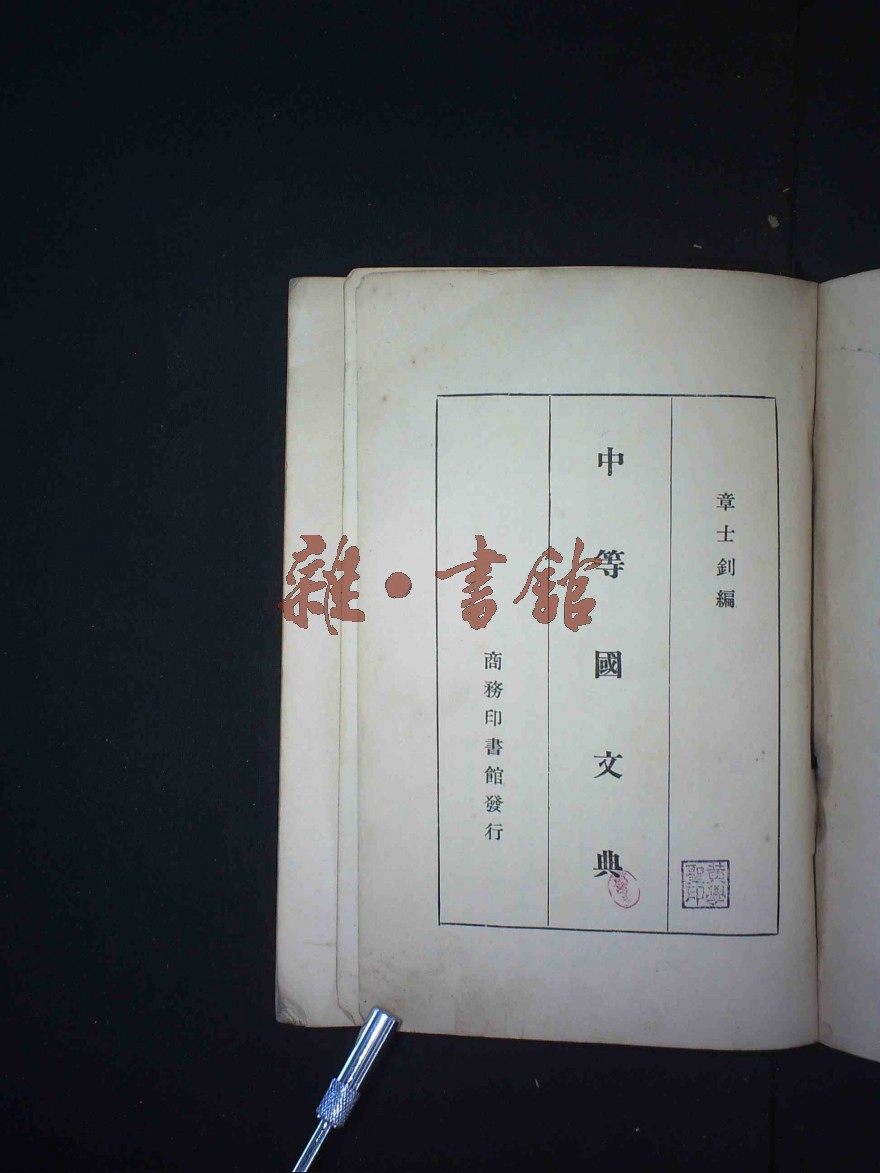 章士釗編
中等國文典
商務印書館發行
雜·書館
黃學
聖印